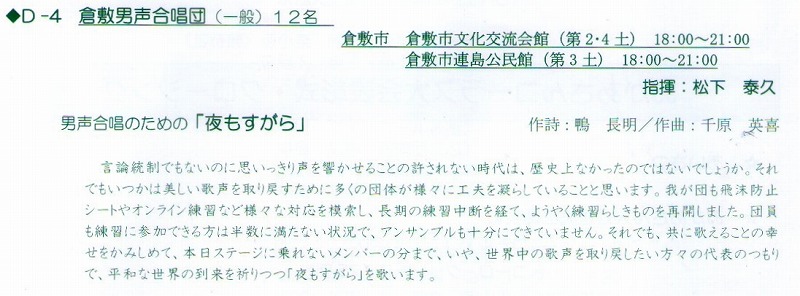 ◆D-4　倉敷男声合唱団（一般）１２名
倉敷市　倉敷市文化交流会館（第2・4土）　18:00～21:00
倉敷市連島公民館（第３土）　18:00～21:00
指揮：松下　泰久
男声合唱のための「夜もすがら」　作詩：鴨　長明／作曲：千原　英喜
言論統制でもないのに思いっきり声を響かせることの許されない時代は、歴史上なかったのではないでしょうか。それ
でもいつかは美しい歌声を取り戻すために多くの団体が様々に工夫を凝らしていることと思います。我が団も飛沫防止
シートやオンライン練習など様々な対応を模索し、長期の練習中断を経て、ようやく練習らしきものを再開しました。団員
も練習に参加できる方は半数に満たない状況で、アンサンブルも十分にできていません。それでも、共に歌えることの幸
せをかみしめて、本日ステージに乗れないメンバーの分まで、いや、世界中の歌声を取り戻したい方々の代表のつもり
で、平和な世界の到来を祈りつつ「夜もすがら」を歌います。